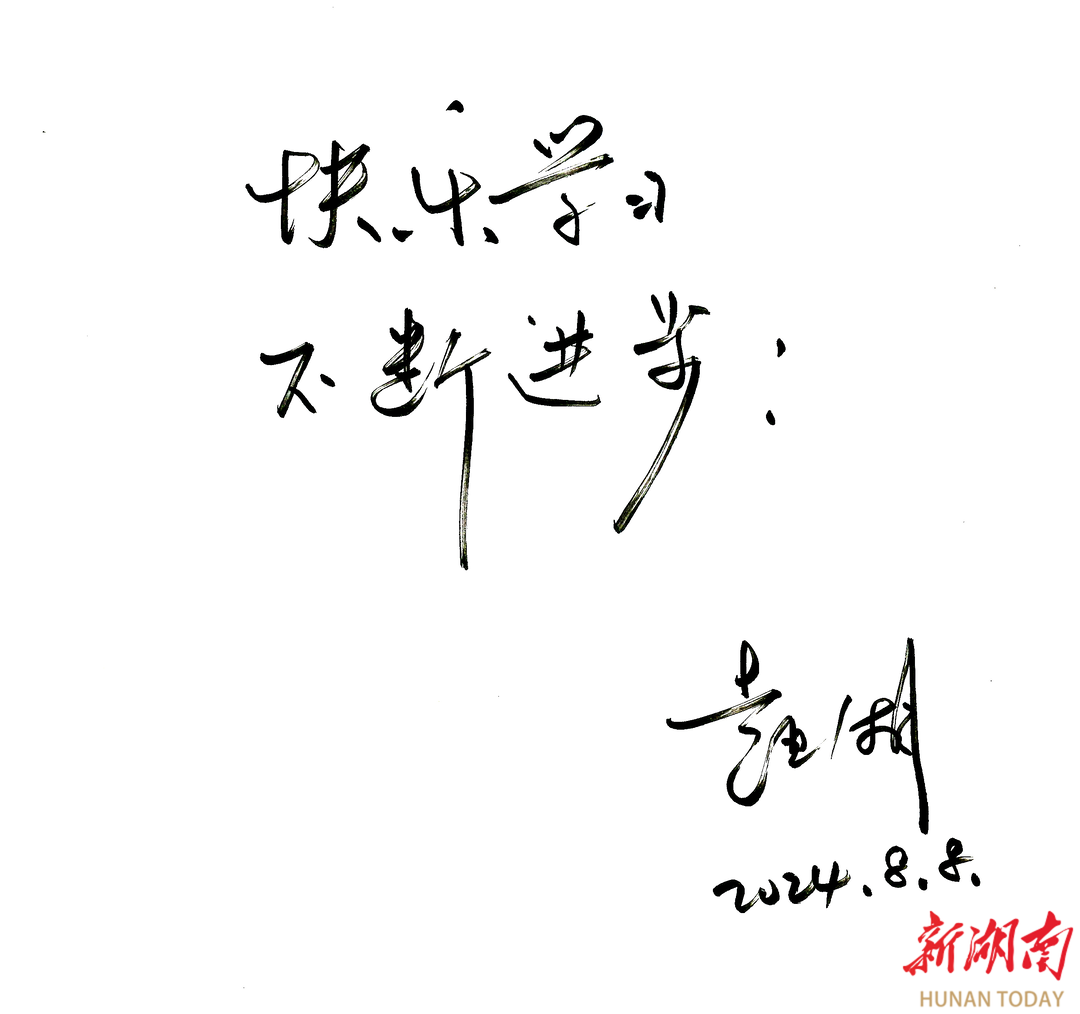 快乐学习
不断进步！
2024.8.8.
新湖南
HUNAN TODAY